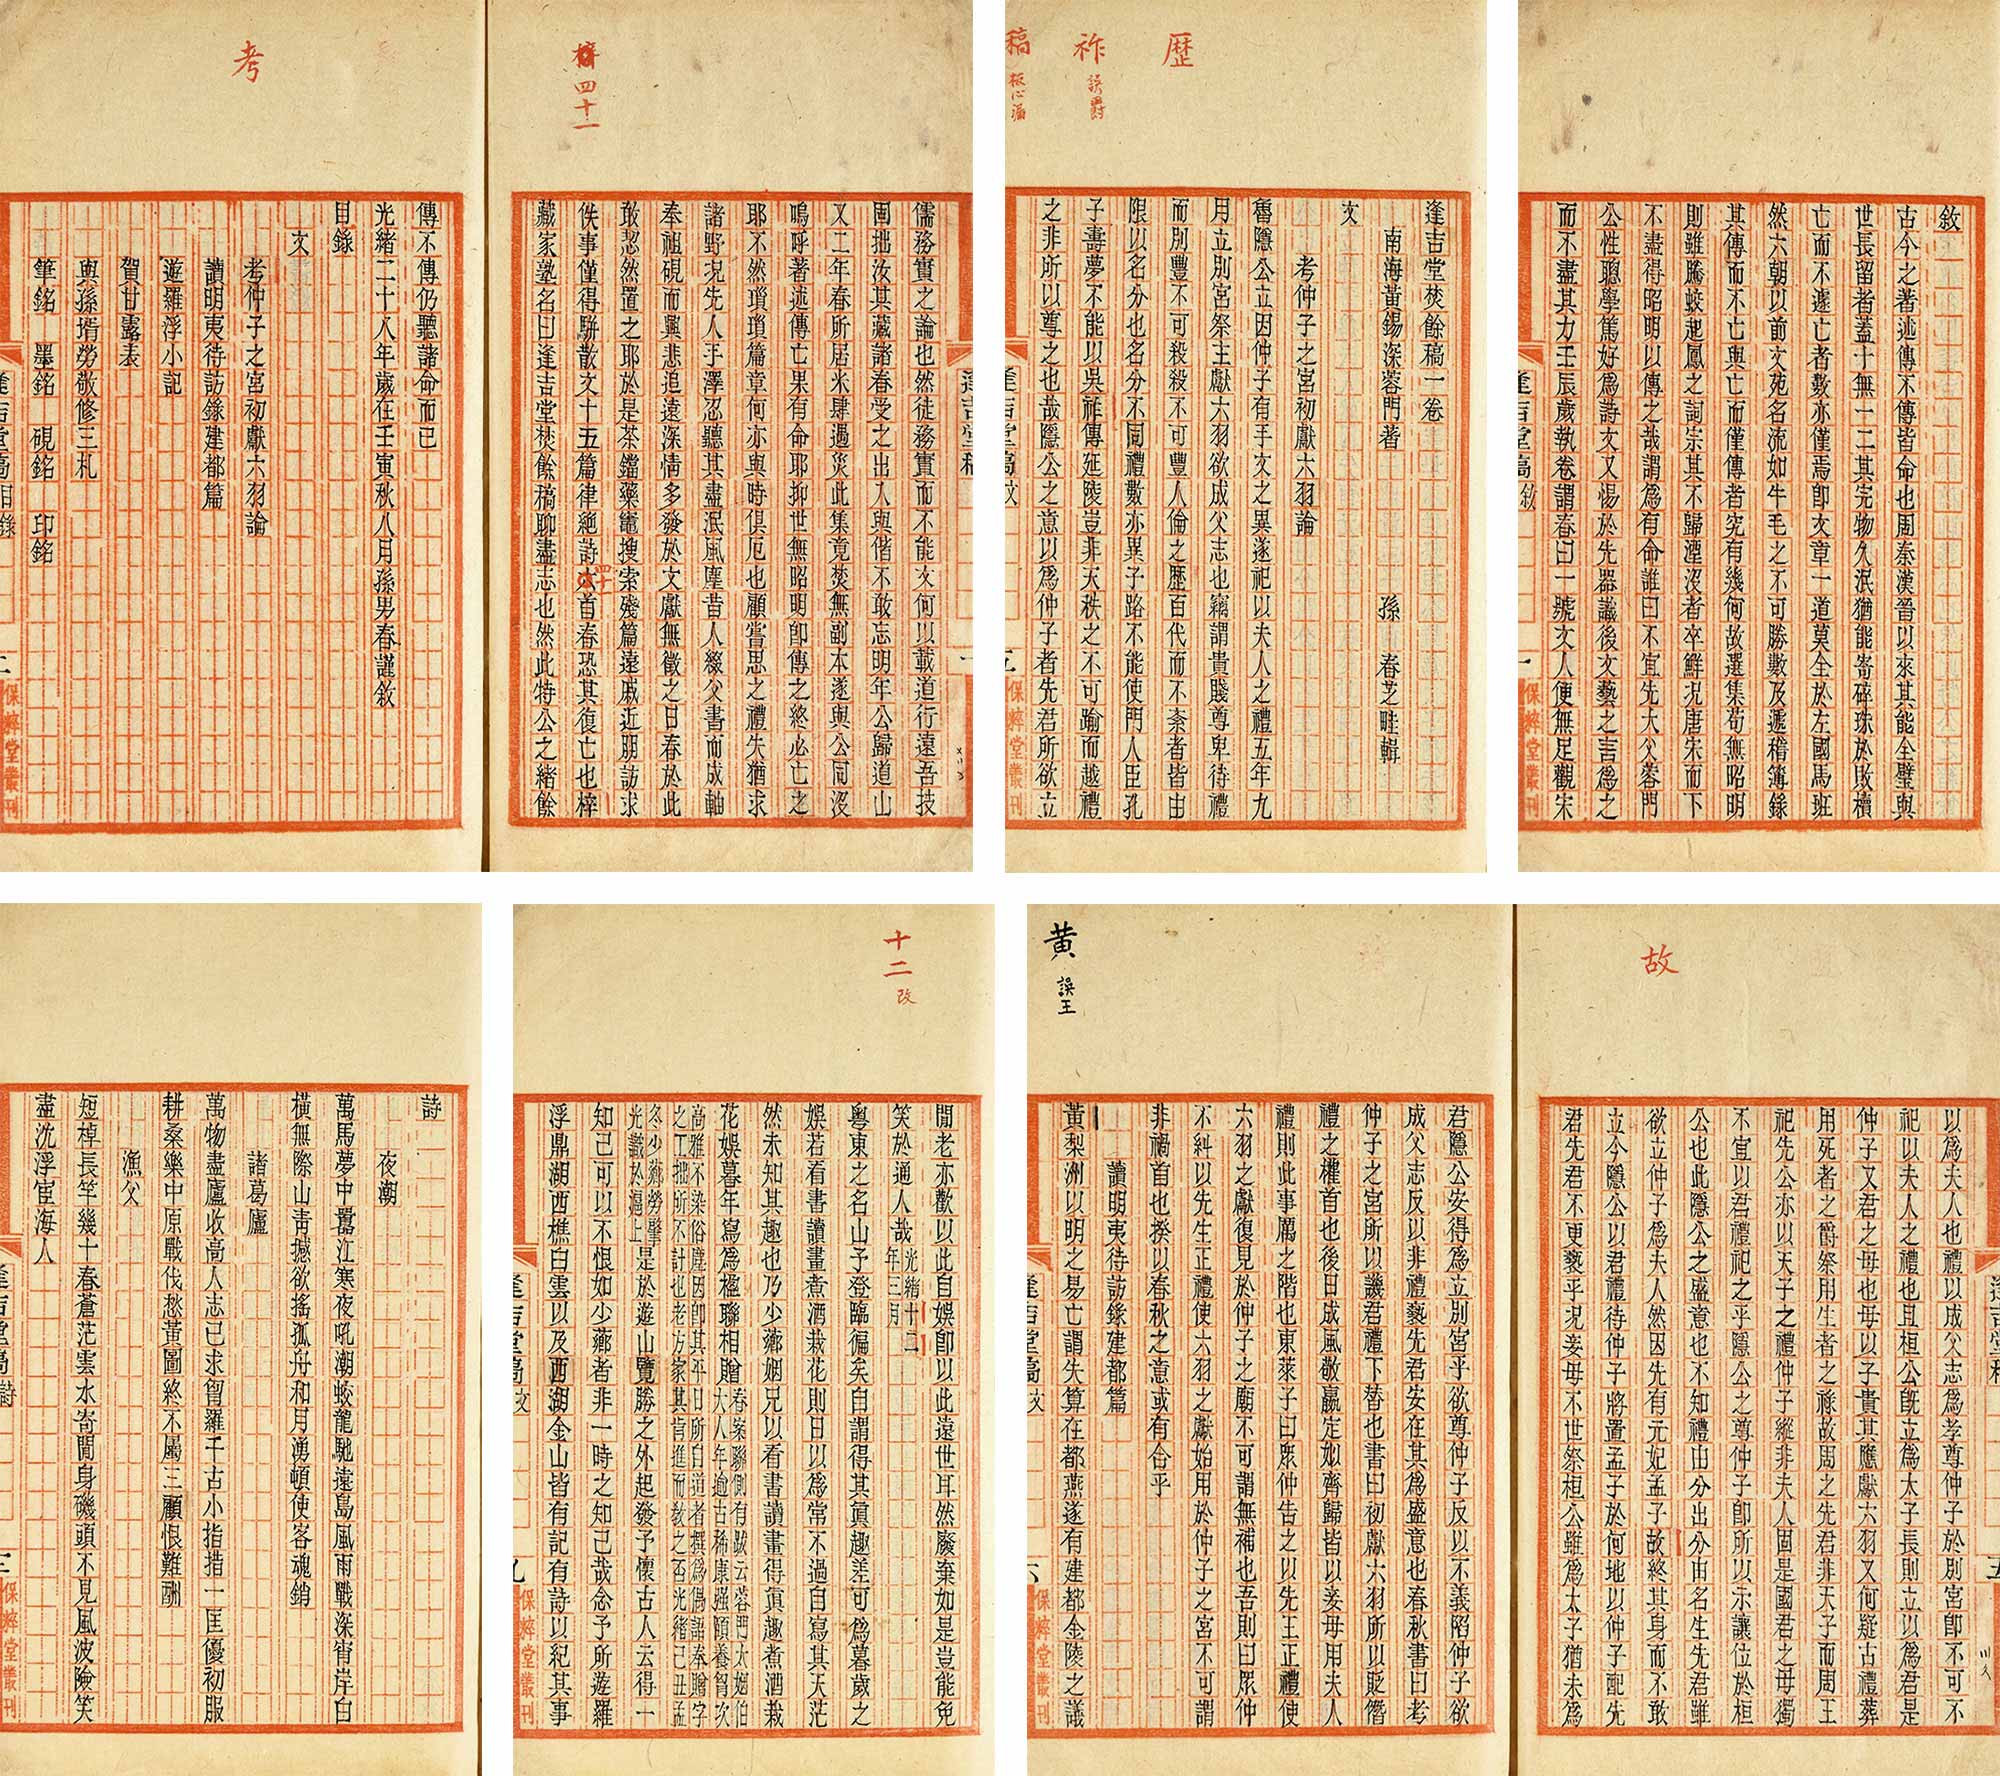 敘
古今之著述傳不傳皆命也周秦漢晉以來其能全璧與
世長留者蓋十無一二其完物久泯猶能寄碎珠於敗櫝
亡而不遽亡者數亦僅焉卽文章一道莫全於左國馬班
然六朝以前文苑名流如牛毛之不可勝數及遞稽簿錄
其傳而不亡與亡而僅傳者究有幾何故選集苟無昭明
則雖騰蛟起鳳之詞宗其不歸湮沒者卒鮮況唐宋而下
不盡得昭明以傳之哉謂爲有命誰曰不宜先大父蓉門
公性聰學篤好爲詩文又惕於先器識後文藝之言爲之
而不盡其力壬辰歲執卷謂春曰一號文人便無足觀宋
逢吉堂稿 敘
一
保粹堂叢刊
歷
祚 誤爵
稿 板心漏
逢吉堂焚餘稿一卷
南海黃錫深蓉門著 孫 春芝畦輯
文
考仲子之宮初獻六羽論
魯隱公立因仲子有手文之異遂祀以夫人之禮五年九
月立別宮祭主獻六羽欲成父志也竊謂貴賤尊卑待禮
而別豐不可殺殺不可豐人倫之歷百代而不紊者皆由
限以名分也名分不同禮數亦異子路不能使門人臣孔
子壽夢不能以吳祚傳延陵豈非天秩之不可踰而越禮
之非所以尊之也哉隱公之意以爲仲子者先君所欲立
逢吉堂稿 文
五
保粹堂叢刊
梓 四十一
儒務實之論也然徒務實而不能文何以載道行遠吾技
固拙汝其藏諸春受之出入與偕不敢忘明年公歸道山
又二年春所居米肆遇災此集竟焚無副本遂與公同沒
嗚呼著述傳亡果有命耶抑世無昭明卽傳之終必亡之
耶不然瑣瑣篇章何亦與時俱厄也顧嘗思之禮失猶求
諸野況先人手澤忍聽其盡泯風塵昔人綴父書而成軸
奉祖硯而興悲追遠深情多發於文獻無徵之日春於此
敢恝然置之耶於是茶鐺藥竈搜索殘篇遠戚近朋訪求
佚事僅得駢散文十五篇律絕詩四十一首春恐其復亡也梓
藏家塾名曰逢吉堂焚餘稿聊盡志也然此特公之緒餘
逢吉堂稿
一
考
傳不傳仍聽諸命而已
光緒二十八年歲在壬寅秋八月孫男春謹敘
目錄
文
考仲子之宮初獻六羽論
讀明夷待訪錄建都篇
遊羅浮小記
賀甘露表
與孫壻勞敬修三札
筆銘 墨銘 硯銘 印銘
逢吉堂稿 目錄
二
保粹堂叢刊
故
以爲夫人也禮以成父志爲孝尊仲子於別宮卽不可不
祀以夫人之禮也且桓公旣立爲太子長則立以爲君是
仲子又君之母也母以子貴其應獻六羽又何疑古禮葬
用死者之爵祭用生者之祿故周之先君非天子而周王
祀先公亦以天子之禮仲子縱非夫人固是國君之母獨
不宜以君禮祀之乎隱公之尊仲子卽所以示讓位於桓
公也此隱公之盛意也不知禮由分出分由名生先君雖
欲立仲子爲夫人然因先有元妃孟子故終其身而不敢
立今隱公以君禮待仲子將置孟子於何地以仲子配先
君先君不更褻乎況妾母不世祭桓公雖爲太子猶未爲
逢吉堂稿
五
黃 誤王
君隱公安得爲立別宮乎欲尊仲子反以不義陷仲子欲
成父志反以非禮褻先君安在其爲盛意也春秋書曰考
仲子之宮所以譏君禮下替也書曰初獻六羽所以貶僭
禮之權首也後日成風敬嬴定姒齊歸皆以妾母用夫人
禮則此事厲之階也東萊子曰眾仲告之以先王正禮使
六羽之獻復見於仲子之廟不可謂無補也吾則曰眾仲
不糾以先生正禮使六羽之獻始用於仲子之宮不可謂
非禍首也揆以春秋之意或有合乎
讀明夷待訪錄建都篇
黃梨洲以明之易亡謂失算在都燕遂有建都金陵之議
逢吉堂稿 文
六
保粹堂叢刊
十二 改
閒老亦歡以此自娛卽以此遠世耳然廢棄如是豈能免
笑於通人哉光緒十二年三月
粵東之名山予登臨徧矣自謂得其眞趣差可爲暮歲之
娛若看書讀畫煮酒栽花則日以爲常不過自寫其天茫
然未知其趣也乃少薌姻兄以看書讀畫得眞趣煮酒栽
花娛暮年寫爲楹聯相贈春案聯側有跋云蓉門太姻伯大人年逾古稀康强頤養胷次
高雅不染俗塵因卽其平日所自道者撰爲偶語奉贈字之工拙所不計也老方家其肯進而敎之否光緒己丑孟
冬少薌勞肇光識於滬上是於遊山覽勝之外起發予懷古人云得一
知己可以不恨如少薌者非一時之知己哉念予所遊羅
浮鼎湖西樵白雲以及西湖金山皆有記有詩以紀其事
逢吉堂稿 文
九
保粹堂叢刊
詩
夜潮
萬馬夢中囂江寒夜吼潮蛟龍馳遠島風雨戰深宵岸白
橫無際山靑撼欲搖孤舟和月湧頓使客魂銷
諸葛廬
萬物盡廬收高人志已求胷羅千古小指掿一匡優初服
耕桑樂中原戰伐愁黃圖終不屬三顧恨難酬
漁父
短棹長竿幾十春蒼茫雲水寄閒身磯頭不見風波險笑
盡沈浮宦海人
逢吉堂稿 詩
三
保粹堂叢刊